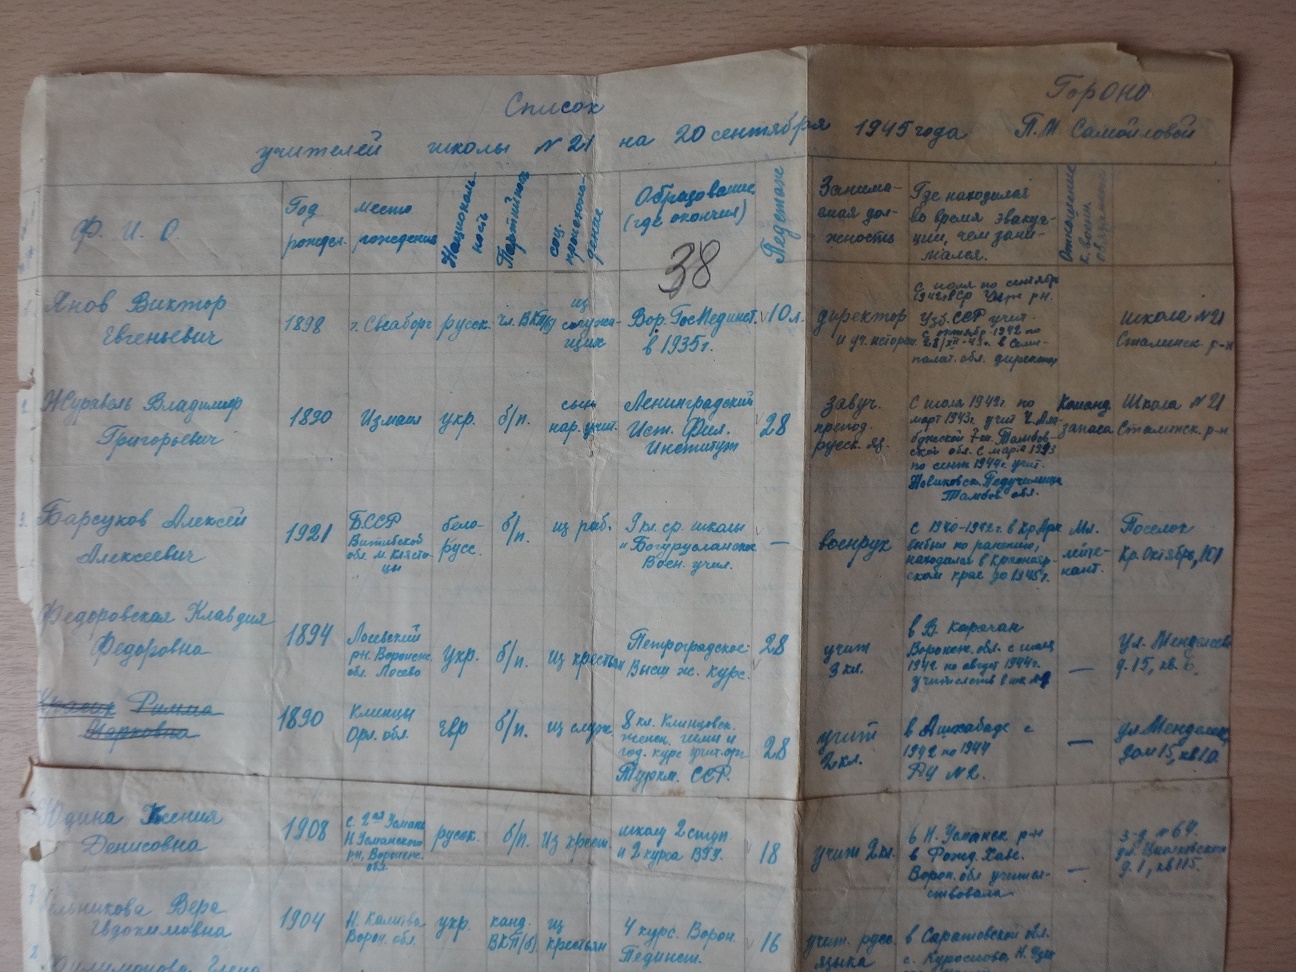 Список
ГорОНО
учителей школы № 21 на 20 сентября 1945 года П.М Самойловой
Ф. И. О
Год
рожден.
место
рождения
Националь-
ность
Партийность
соц.
происхож-
дение
Образование
(где окончил)
38
Педстаж
Занима-
емая дол-
жность
Где находился
во время эвакуа-
ции, чем зани-
мался.
Отношение
к воин.
обязанности
1.
Янов Виктор
Евгеньевич
1898
г. Свеаборг
русск.
чл. ВКП(б)
из
служа-
щих
Вор. Гос Пединст.
в 1935г.
10 л.
директор
и уч. истории
с июля по сентябрь
Узб. ССР учит.
с октябр 1942 по
в Семи-
полат. обл. директор
школа №21
Сталинск. р-н
2.
Журавль Владимир
Григорьевич
1890
Измаил
укр.
б/п.
сын
нар. учит.
Ленинградский
Ист. Фил.
Институт
28
завуч.
препод.
русск. яз.
С июля 1942г. по
март 1943г. учит
ской обл. с марта 1943
по сент 1944г. учит.
Новиковск. Педучилища
Тамбов обл.
Команд.
запаса
Школа №21
Сталинск. р-н
3.
Барсуков Алексей
Алексеевич
1921
БССР
Витебской
обл.
бело-
русс.
б/п.
из раб.
9 кл. ср. школы
и Бугурусланское
Воен. учил.
—
военрук
с 1940-1942г. в Кр Арм
выбыл по ранению,
находился в Краснояр-
ском крае до 1945г.
Мл.
лейте-
нант.
Поселок
Кр. Октябрь, 101
Федоровская Клавдия
Федоровна
1894
Лосевский
рн. Воронеж.
обл. Лосево
укр.
б/п.
из крестьян
Петроградские
Высш ж. курс.
28
учит
3 кл.
в В. Карачан
Воронеж. обл. с июля
1942 по август 1944г.
—
ул. Менделеева
д. 15, кв. 6.
Римма
Марковна
1890
Клинцы
Орл. обл.
евр
б/п.
из служ.
8 кл. Клинцовск.
женск. гимн и
год. курс учит. при
Туркм. ССР.
28
учит
2 кл.
в Ашхабаде с
1942 по 1944
РУ № 2.
—
ул. Менделеев
дом 15, кв 10.
Юдина Ксения
Денисовна
1908
с. 2ая Усмань
Н Усманского
рн, Воронеж.
обл.
русск.
б/п.
Из крестьн.
школу 2 ступ
и 2 курса
18
учит 2 кл.
в Н. Усманск р-н
в Рожд. Хаве.
Ворон. обл учитель-
ствовала
—
д. 1, кв 115.
7.
Мельникова Вера
Евдокимовна
1904
Н. Калитва
Ворон. обл.
укр.
канд.
ВКП(б)
из
крестьян
4 курс. Ворон.
Пединст.
16
учит. русс.
языка
в Саратовской обл.
Филимонова Елена